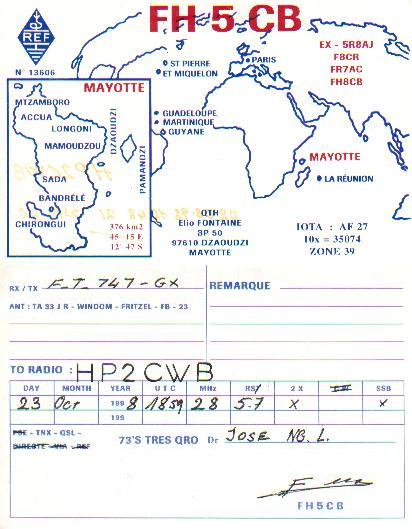 FH-5 CB
REF
N° 13606
EX - 5R8AJ
F8CR
FR7AC
FH8CB
ST PIERRE
ET MIQUELON
PARIS
MAYOTTE
MTZAMBORO
ACCUA
LONGONI
MAMOUDZOU
DZAOUDZI
PAMANDZI
SADA
BANDRÉLÉ
CHIRONGUI
376 km2
45° 15 E
12° 47 S
GUADELOUPE
MARTINIQUE
GUYANE
MAYOTTE
LA RÉUNION
QTH
Elio FONTAINE
BP 50
97610 DZAOUDZI
MAYOTTE
IOTA : AF 27
10x = 35074
ZONE 39
RX / TX F_T_747-GX
REMARQUE
ANT : TA 33 J R - WINDOM - FRITZEL - FB - 23
TO RADIO : HP2CWB
DAY MONTH YEAR U T C MHz RS/ 2 X CW SSB
23 Oct 1998 1859 28 5-7 X X
199
PSE - TNX - QSL -
DIRECTE - VIA - REF
73'S TRES QRO Dr JOSE NG. L.
FH5CB